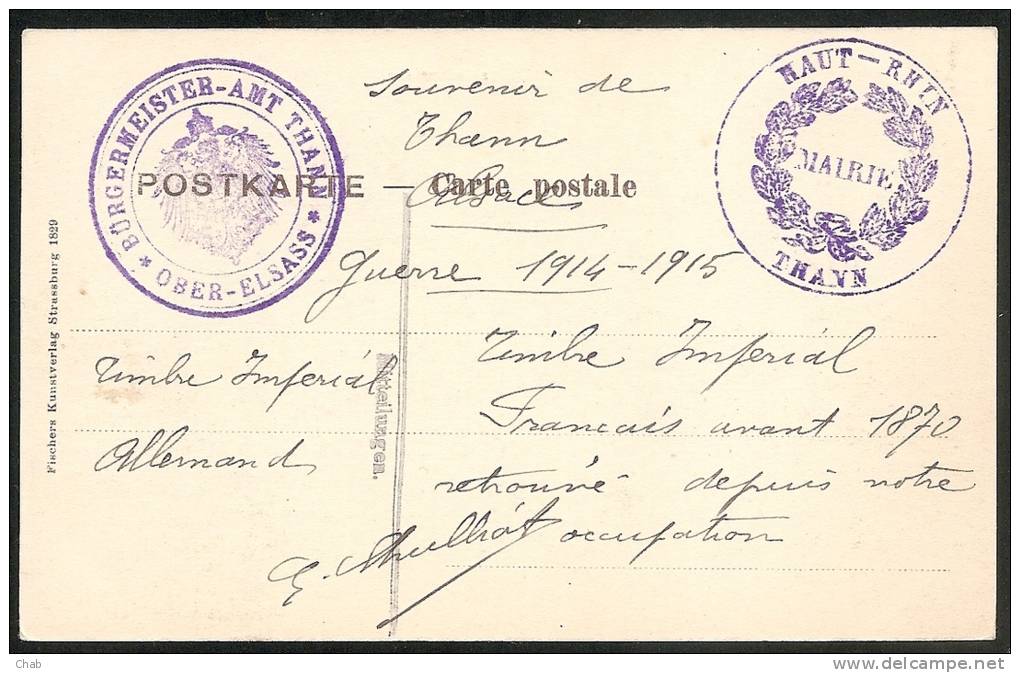 BÜRGERMEISTER-AMT THANN
* OBER-ELSASS *
HAUT-RHIN
MAIRIE
THANN
POSTKARTE — Carte postale
Souvenir de
Thann
Alsace
Guerre 1914-1915
Timbre Impérial
Allemand
Timbre Impérial
Francais avant 1870
retrouvé depuis notre
occupation
Mitteilungen.
Fischers Kunstverlag Strassburg 1829
Chab
www.delcampe.net